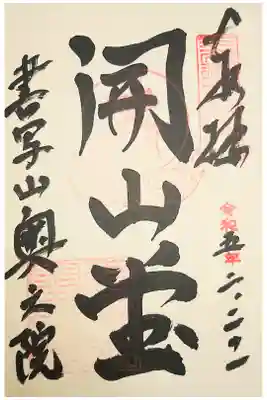 奉拝
令和五年二.二.二一
開山堂
書写山奥之院